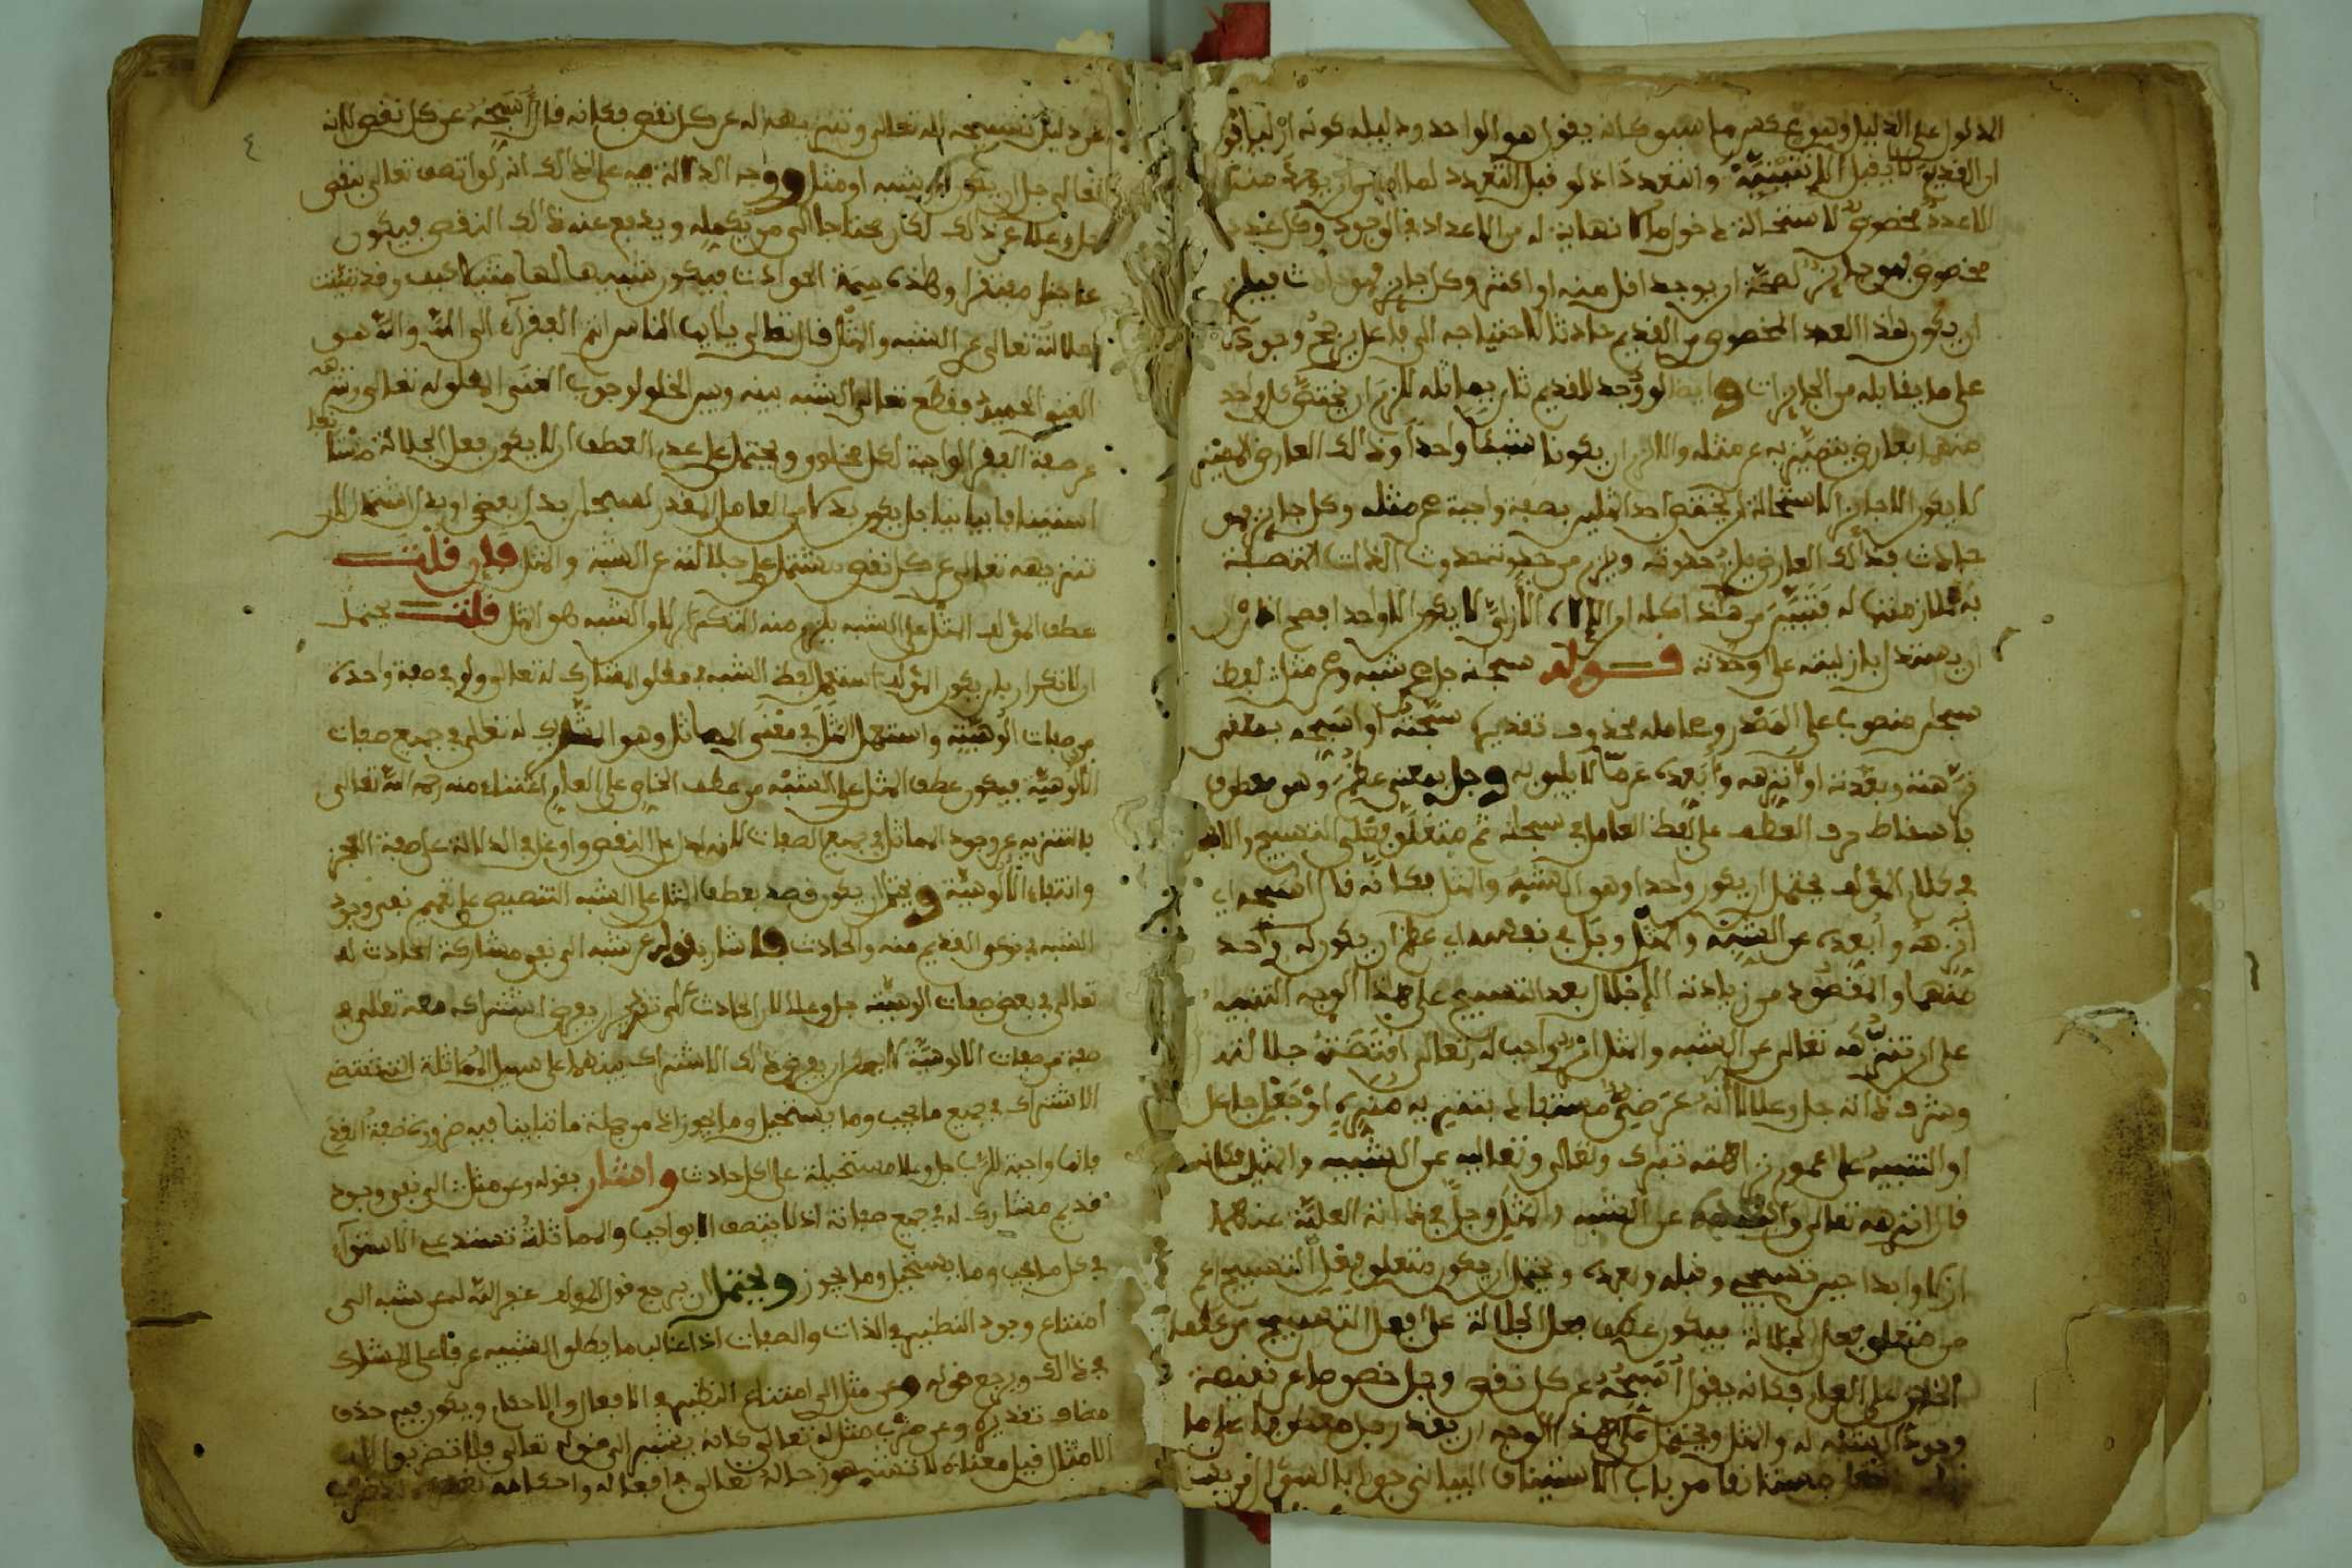 المدلول على الدليل وهو عكس ما سبق كانه يقول هو الواحد ودليله كونه ازليا
ان القديم لا يقبل الاثنينية والتعدد اذ لو قبل التعدد
الا عدد مخصوص لاستحالة دخول ما لا نهاية له من الاعداد في الوجود وكل عدد
مخصوص فهو جايز لصحة ان يوجد اقل منه او اكثر وكل جايز فهو حادث فيلزم
ان يكون هذا العدد المخصوص من القديم حادثا لاحتياجه الى فاعل يرجح وجوده
على ما يقابله من الجايزات وايضا لو وجد للقديم ثان يماثله للزم ان يختص كل واحد
منهما بعارض يتميز به عن مثله والا لزم ان يكونا شيئا واحدا وذلك العارض المميز
لا يكون الا جايزا لاستحالة ان يختص احد المثلين بصفة واجبة عن مثله وكل جايز فهو
حادث فذلك العارض يلزم حدوثه ويلزم من حدوثه حدوث الذات المتصفة
به لملازمتها له فتبين من هذا كله ان الاله الازلي لا يكون الا واحدا فصح اذا
ان يستدل بازليته على وحدته قوله سبحانه جل عن شبه وعن مثل لفظ
سبحان منصوب على المصدر وعامله محذوف تقديره سبحته او اسبحه بمعنى
نزهته وبعدته او انزهه وابعده عما لا يليق به وجل بمعنى عظم وهو معطوف
باسقاط حرف العطف على لفظ العامل في سبحانه ثم متعلق فعلي التسبيح والاجلال
في كلام المؤلف يحتمل ان يكون واحدا وهو الشبه والمثل فكانه قال اسبحه اي
انزهه وابعده عن الشبه والمثل وجل في نفسه اي عظم ان يكون له واحد
منهما والمقصود من زيادة الاجلال بعد التسبيح على هذا الوجه التنبيه
على ان تنزهه تعالى عن الشبه والمثل امر واجب له تعالى اقتضته جلالته
وشرف ذاته جل وعلا لا انه عرضي مستفاد بتنزيه منزه او جعل جاعل
او التنبيه على عموم نزاهته تبارك وتعالى وتعاليه عن الشبيه والمثل فكانه
قال انزهه تعالى عن الشبه والمثل وجل في ذاته العلية عنهما
ازلا وابدا حين تسبيحي وقبله وبعده ويحتمل ان يكون متعلق فعل التسبيح اعم
من متعلق فعل الجلالة فيكون عطف فعل الجلالة على فعل التسبيح من عطف
الخاص على العام فكانه يقول اسبحه عن كل نقص وجل خصوصا عن نقيصة
وجود الشبه له والمثل ويحتمل على هذا الوجه ان يقدر جل معطوفا على ما
مستانفا من باب الاستيناف البياني جوابا لسؤال
عن دليل تسبيحه له تعالى وتنزيهه له عن كل نقص فكانه قال اسبحه عن كل نقص لانه
تعالى جل ان يكون له شبه او مثل ووجه الدلالة فيه على ذلك انه لو اتصف تعالى بنقص
جل وعلا عن ذلك لكان محتاجا الى من يكمله ويدفع عنه ذلك النقص فيكون
عاجزا مفتقرا وهذه سمة الحوادث فيكون شبيها لها مثيلا كيف وقد تبينت
جلالته تعالى عن الشبه والمثل قال تعالى يا ايها الناس انتم الفقراء الى الله والله هو
الغني الحميد فقطع تعالى الشبه بينه وبين الخلق لوجوب الغنى المطلق له تعالى وتنزهه
عن صفة الفقر الواجبة لكل مخلوق ويحتمل على عدم العطف ان لا يكون فعل الجلالة مستانفا
استينافا بيانيا بل يكون بدلا من العامل المقدر لسبحان بدل بعض او بدل اشتمال لان
تنزيهه تعالى عن كل نقص يشتمل على جلالته عن الشبه والمثل فان قلت
عطف المؤلف المثل على الشبه يلزم منه التكرار اذ الشبه هو المثل قلت يحتمل
ان لا تكرار بان يكون المؤلف استعمل لفظ الشبه في مطلق المشارك له تعالى ولو في صفة واحدة
من صفات الوهيته واستعمل المثل في معنى المماثل وهو المشارك له تعالى في جميع صفات
الالوهية فيكون عطف المثل على الشبه من عطف الخاص على العام اعتناء منه رحمه الله تعالى
بالتنزيه عن وجود المماثل في جميع الصفات لانه ادل على النقص واوغل في الدلالة على صفة العجز
وانتفاء الالوهية ويحتمل ان يكون قصد بعطف المثل على الشبه التنصيص على تعميم نفي وجود
الشبه في نحو القديم منه والحادث فاشار بقوله عن شبه الى نفي مشاركة الحادث له
تعالى في بعض صفات الوهيته جل وعلا لان الحادث
صفة من صفات الالوهية لا يمكن ان يفرض ذلك الاشتراك بينهما على سبيل المماثلة التي تقتضي
الاشتراك في جميع ما يجب وما يستحيل وما يجوز اذ من جملة ما تباينا فيه ضرورة صفة القدم
فانها واجبة للرب جل وعلا مستحيلة على كل حادث واشار بقوله وعن مثل الى نفي وجود
قديم مشارك له في جميع صفاته اذ لا يتصف الا بواجب والمماثلة تستدعي الاستواء
في كل ما يجب وما يستحيل وما يجوز ويحتمل ان يرجع قول المؤلف غفر الله له عن شبه الى
امتناع وجود النظير في الذات والصفات اذ غالب ما يطلق الشبيه عرفا على المشارك
في ذلك ويرجع قوله وعن مثل الى امتناع النظير في الافعال والاحكام ويكون فيه حذف
مضاف تقديره وعن ضرب مثل له تعالى كانه يشير الى قوله تعالى فلا تضربوا لله
الامثال قيل معناه لا تشبهوا جلاله تعالى في افعاله واحكامه